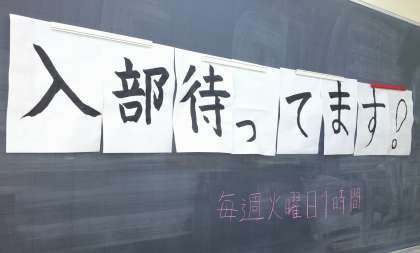 入部待ってます!
毎週火曜日1時間